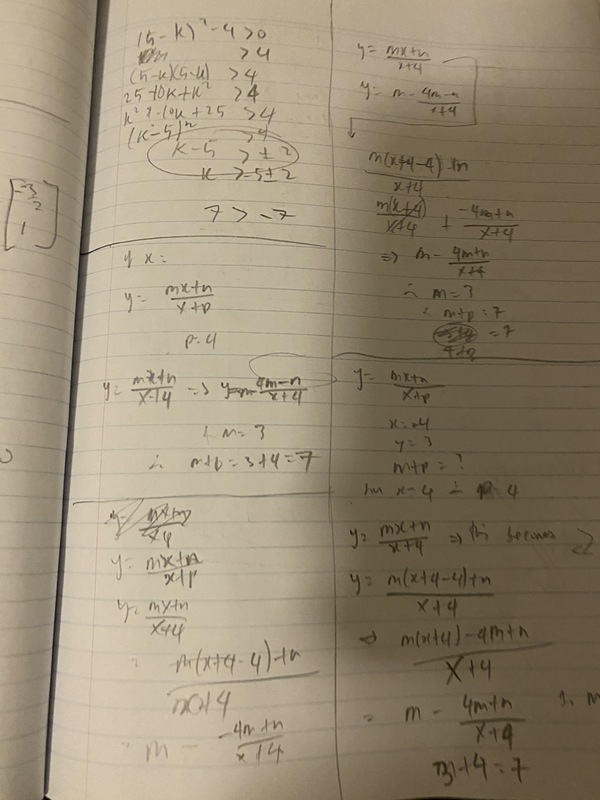 (5-k)² - 4 > 0
> 4
(5-k)(5-k) > 4
25 + 10k + k² > 4
k² + -10k + 25 > 4
(k-5)² > 4
k-5 > ±2
k > -5 ± 2
7 > -7
[-3/2
1]
if x =
y = (mx+n)/(x+p)
p = 4
y = (mx+n)/(x+4) => y = m - (4m-n)/(x+4)
∴ m = 3
∴ m+p = 3+4 = 7
y = (mx+n)/(x+p)
y = (mx+n)/(x+4)
= (m(x+4-4)+n)/(x+4)
= m - (-4m+n)/(x+4)
y = (mx+n)/(x+4)
y = m - (4m-n)/(x+4)
(m(x+4-4)+n)/(x+4)
(m(x+4))/(x+4) + (-4m+n)/(x+4)
=> m - (4m+n)/(x+4)
∴ m = 3
∴ m+p = 7
= 7
y = (mx+n)/(x+p)
x = -4
y = 3
m+p = ?
x-4 ∴ p 4
y = (mx+n)/(x+4) => this becomes
y = (m(x+4-4)+n)/(x+4)
=> (m(x+4)-4m+n)/(x+4)
= m - (4m+n)/(x+4)
3+4 = 7